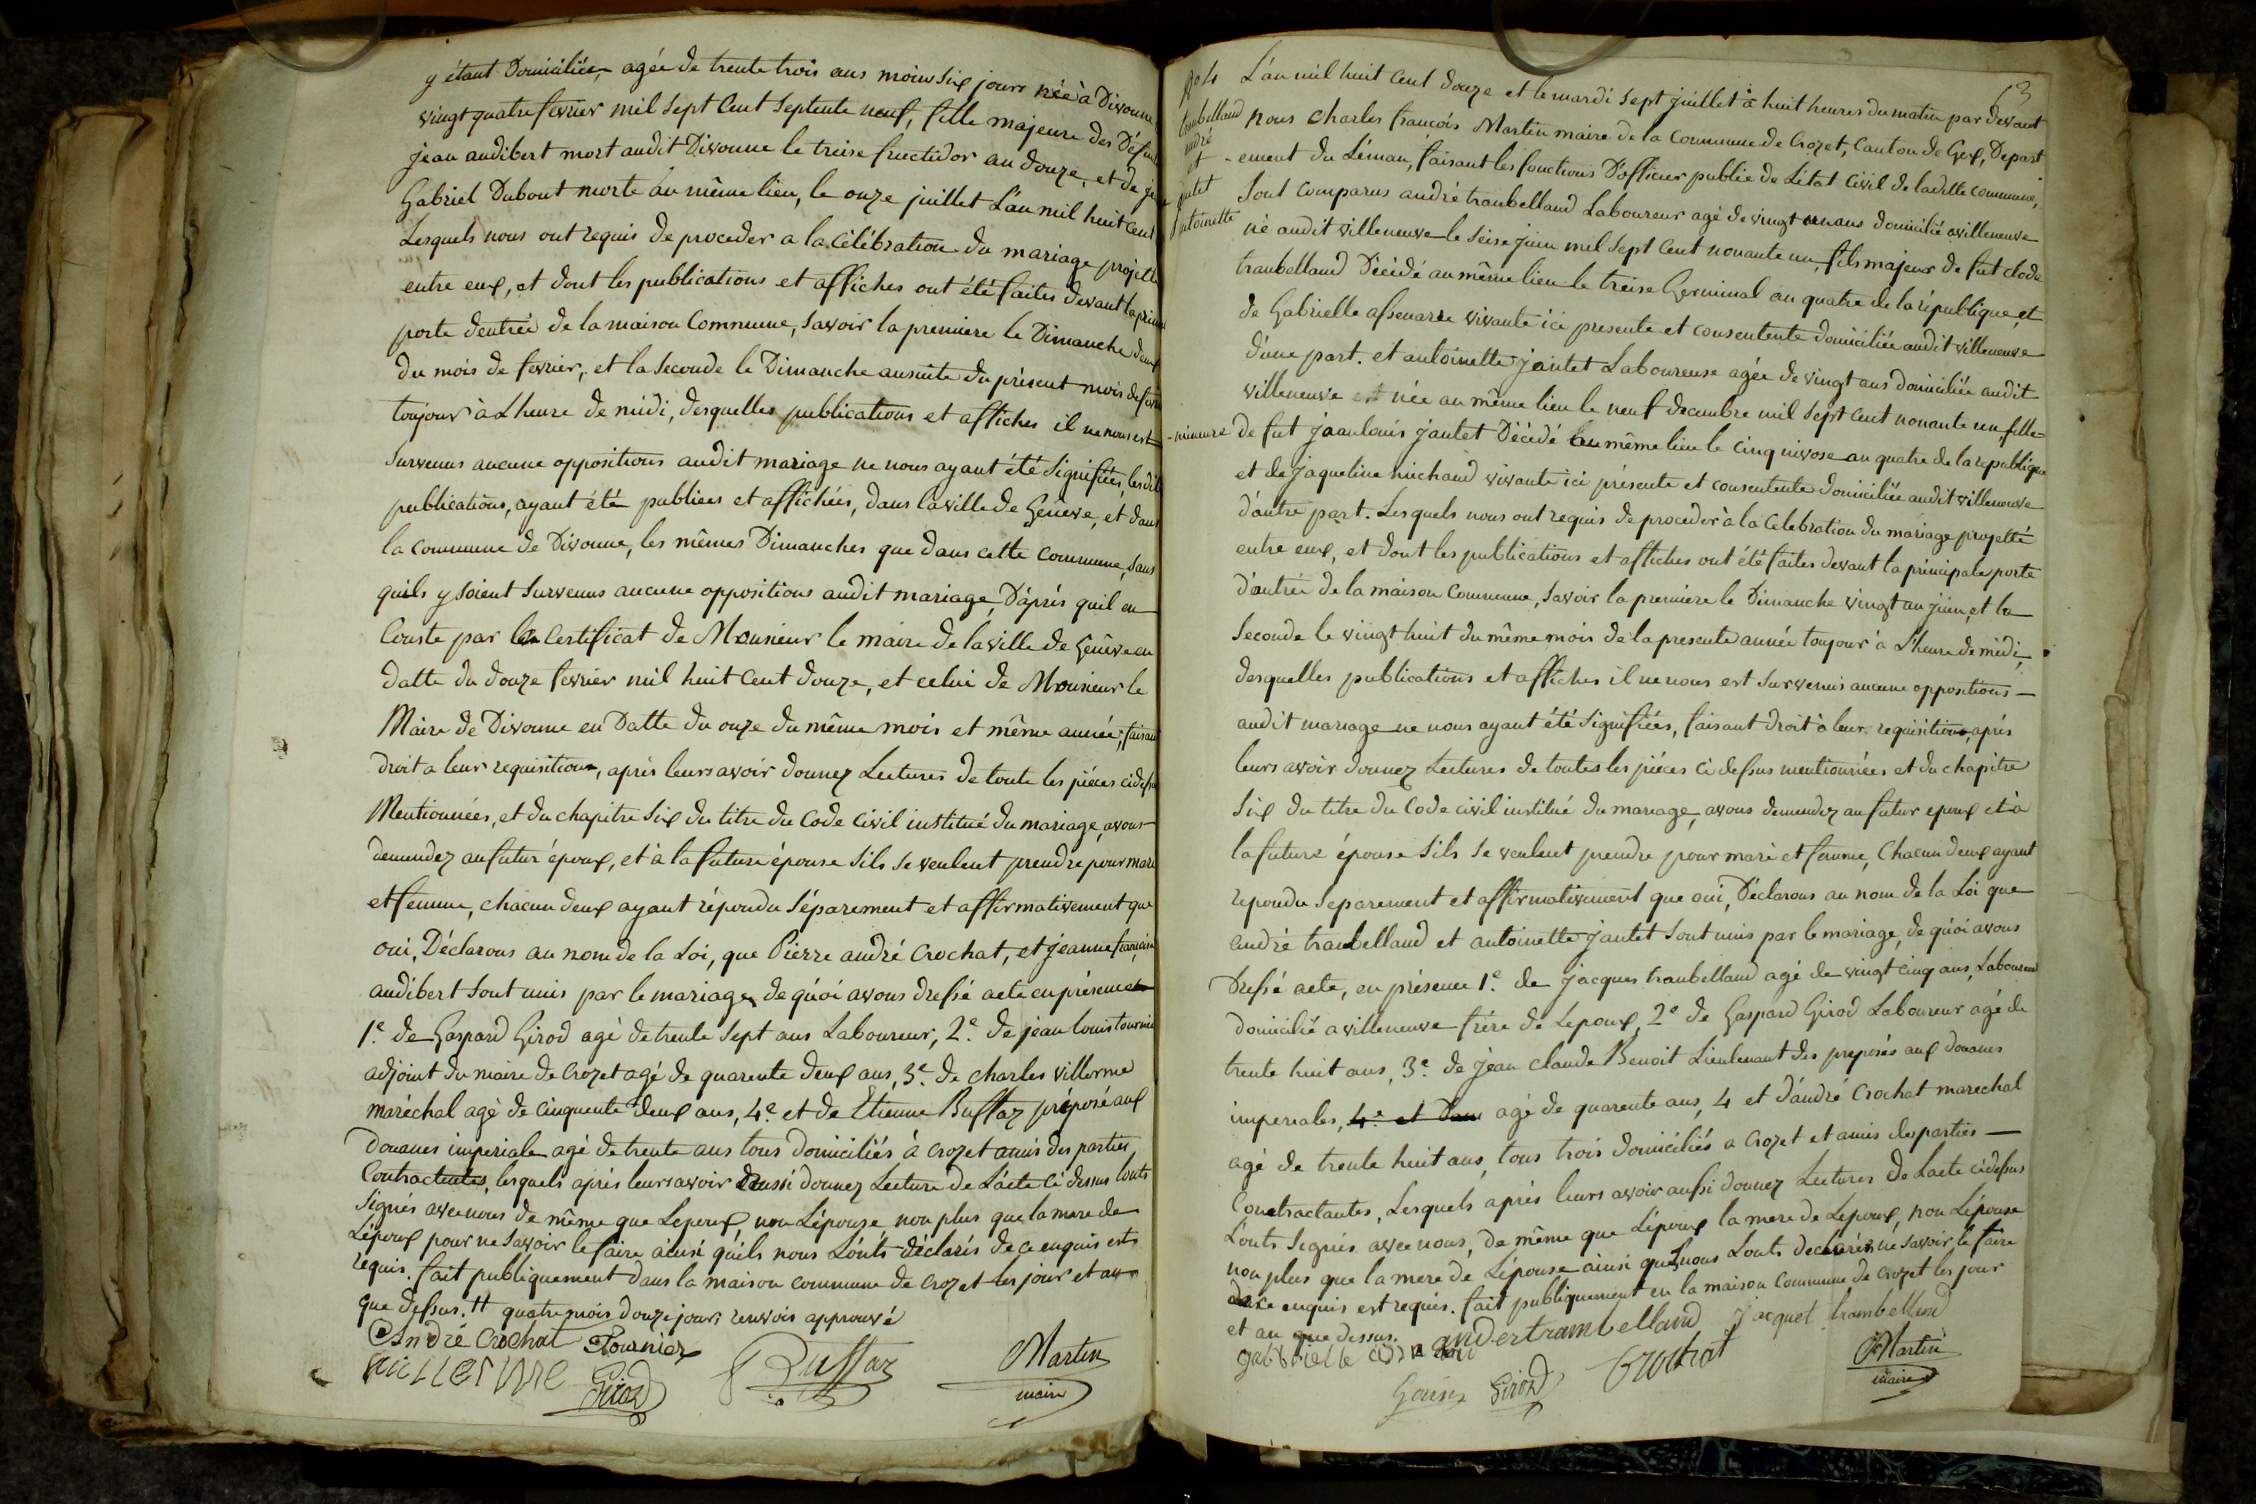 y étant Domiciliée, agée de trente trois ans moins six jours née à Divonne
vingt quatre fevrier mil sept Cent septente neuf, fille majeure des Défunts
jean audibert mort audit Divonne le treise fructidor an douze, et de
Gabriel Dubout morte au même lieu, le onze juillet L'an mil huit Cent
Lesquels nous ont requis de proceder a la Célébration du mariage projetté
entre eux, et dont les publications et affiches ont été faites devant la
porte d'entrée de la maison Commune, savoir la premiere le Dimanche deux
du mois de fevrier, et la seconde le Dimanche ansuite du présent mois de
toujour à L'heure de midi, desquelles publications et affiches il ne nous est
survenus aucune oppositions audit mariage ne nous ayant été signifiées, lesdites
publications, ayant été publiées et affichées, dans la ville de Genève, et dans
la commune de Divonne, les mêmes Dimanches que dans cette commune, sans
quils y soient survenus aucune oppositions audit mariage, D'après quil en
Conste par le Certificat de Monsieur le maire de la ville de Genève en
datte du douze fevrier mil huit Cent douze, et celui de Monsieur le
Maire de Divonne en Datte du onze du même mois et même année, faisant
droit a leur requisitions, après leurs avoir donnez Lectures de toute les pièces cidessus
Mentionnées, et du chapitre six du titre du Code Civil institué du mariage, avons
demendez au futur époux, et à la future épouse sils se veulent prendre pour mari
et femme, chacun deux ayant répondu séparement et affirmativement que
oui, Déclarons au nom de la Loi, que Pierre andré Crochat, et jeanne
audibert sont unis par le mariage, de quoi avons dressé acte en présence
1.e de Gaspard Girod agé de trente sept ans Laboureur, 2.e de jean Louis tournier
adjoint du maire de Crozet agé de quarente deux ans, 3.e de charles villerme
maréchal agé de cinquente deux ans, 4.e et de Etienne Buffaz préposé aux
Douanes imperiale agé de trente ans tous domiciliés à crozet amis des parties
Contractentes, lesquels après leurs avoir aussi donnez Lecture de L'acte Ci dessus Lonts
signés avec nous de même que Lepoux, non Lépouse non plus que la mere de
Lépoux pour ne savoir le faire ainsi quils nous Lonts déclarés de ce enquis et
requis. fait publiquement dans la maison commune de crozet les jour et an
que dessus. ++ quatre mois douze jours renvois approuvé
André Crochat Tournier
villerme Girod Buffaz Martin
maire
3
L'an mil huit Cent douze et le mardi sept juillet à huit heures du matin par devant
nous Charles francois Martin maire de la Commune de Crozet, Canton de Gex, Depart
-ement du Léman, faisant les fonctions D'officier public de L'état Civil de ladite commune,
sont comparus andré trambelland Laboureur agé de vingt un ans domicilié a villeneuve
né audit villeneuve le seise juin mil sept Cent nonante un, fils majeur de fut clode
trambelland Décédé au même lieu le treise Germinal an quatre de la république, et
de Gabrielle vivante ici presente et consentente domiciliée audit villeneuve
d'une part. et antoinette jantet Laboureuse agée de vingt ans domiciliée audit
villeneuve née au même lieu le neuf decembre mil sept Cent nonante un, fille
-mineure de fut jeanlouis jantet Décédé au même lieu le cinq nivose an quatre de la republique
et de jaqueline michaud vivante ici présente et consentente domiciliée audit villeneuve
d'autre part. Lesquels nous ont requis de proceder à la Celebration du mariage projetté
entre eux, et dont les publications et affiches ont été faites devant la principale porte
d'entrée de la maison Commune, savoir la premiere le Dimanche vingt un juin, et la
seconde le vingt huit du même mois de la presente année toujour à L'heure de midi,
desquelles publications et affiches il ne nous est survenus aucune oppositions
audit mariage ne nous ayant été signifiées, faisant droit à leur requisitions, après
leurs avoir donnez Lectures de toutes les pièces Ci dessus mentionnées et du chapitre
six du titre du Code civil institué du mariage, avons demendez au futur epoux et à
la future épouse sils se veulent prendre pour mari et femme, Chacun deux ayant
repondu separement et affirmativement que oui, Déclarons au nom de la Loi que
andré trambelland et antoinette jantet sont unis par le mariage, de quoi avons
Dressé acte, en présence 1.e de jacques trambelland agé de vingt cinq ans, Laboureur
domicilié a villeneuve frère de Lepoux, 2.e de Gaspard Girod Laboureur agé de
trente huit ans, 3.e de jean claude Benoit Lieutenant des preposés aux douanes
imperiales, 4.e et agé de quarente ans, 4 et d'andré Crochat marechal
agé de trente huit ans, tous trois domiciliés a Crozet et amis des parties
Contractantes, Lesquels après leurs avoir aussi donnez Lectures de L'acte cidessus
Lonts signés avec nous, de même que Lépoux la mere de Lepoux, non Lépouse
non plus que la mere de Lépouse ainsi quils nous Lonts declarés ne savoir le faire
de ce enquis est requis. fait publiquement en la maison Commune de crozet les jour
et an que dessus. andertrambelland jacquet trambelland
gabbrielle
Girod Crochat Martin
maire
trambelland
andré
et
jantet
antoinette